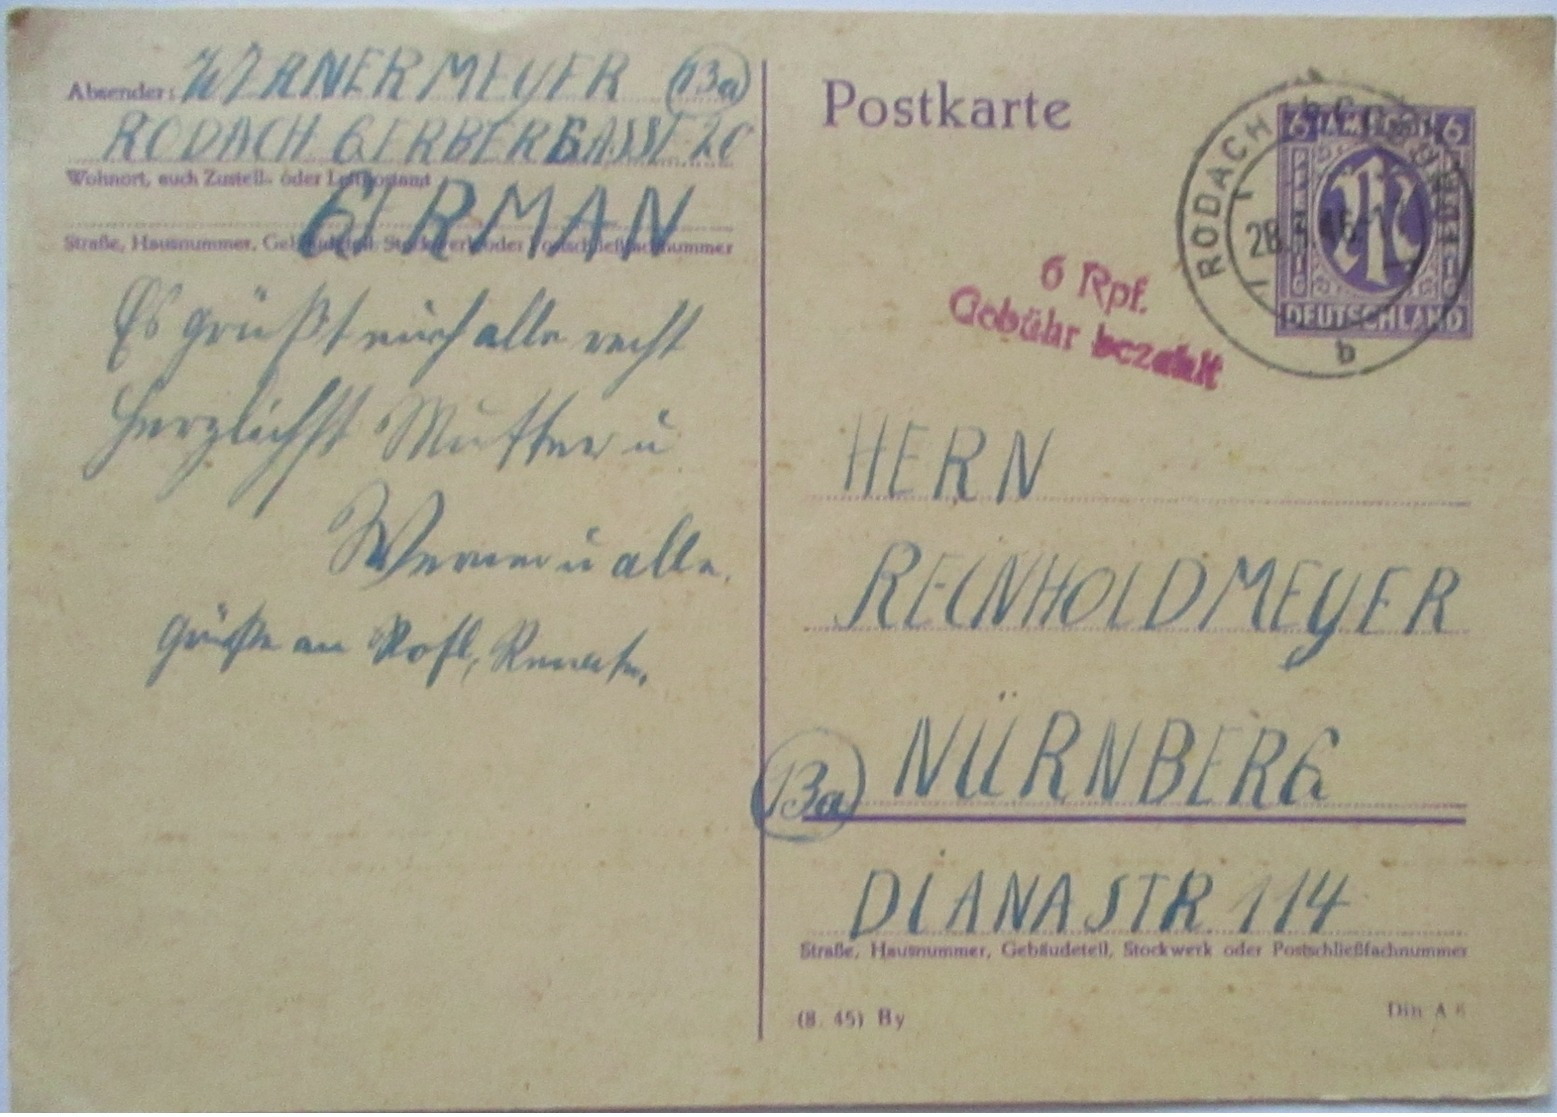 Absender: WERNER MEYER (13a)
RODACH GERBERGASSE 20
Wohnort, auch Zustell- oder Leitpostamt
GERMAN
Straße, Hausnummer, Gebäudeteil, Stockwerk oder Postschließfachnummer
Es grüßt euch alle recht
herzlichst Mutter u
Werner u alle.
Grüße an Rosl, Renate.
Postkarte
6 AM POST 6
PFENNIG PFENNIG
M
DEUTSCHLAND
RODACH b COBURG
28. 45-1
b
6 Rpf.
Gebühr bezahlt
HERN
REINHOLD MEYER
(13a) NÜRNBERG
DIANASTR 114
Straße, Hausnummer, Gebäudeteil, Stockwerk oder Postschließfachnummer
(8. 45) By
Din A 6